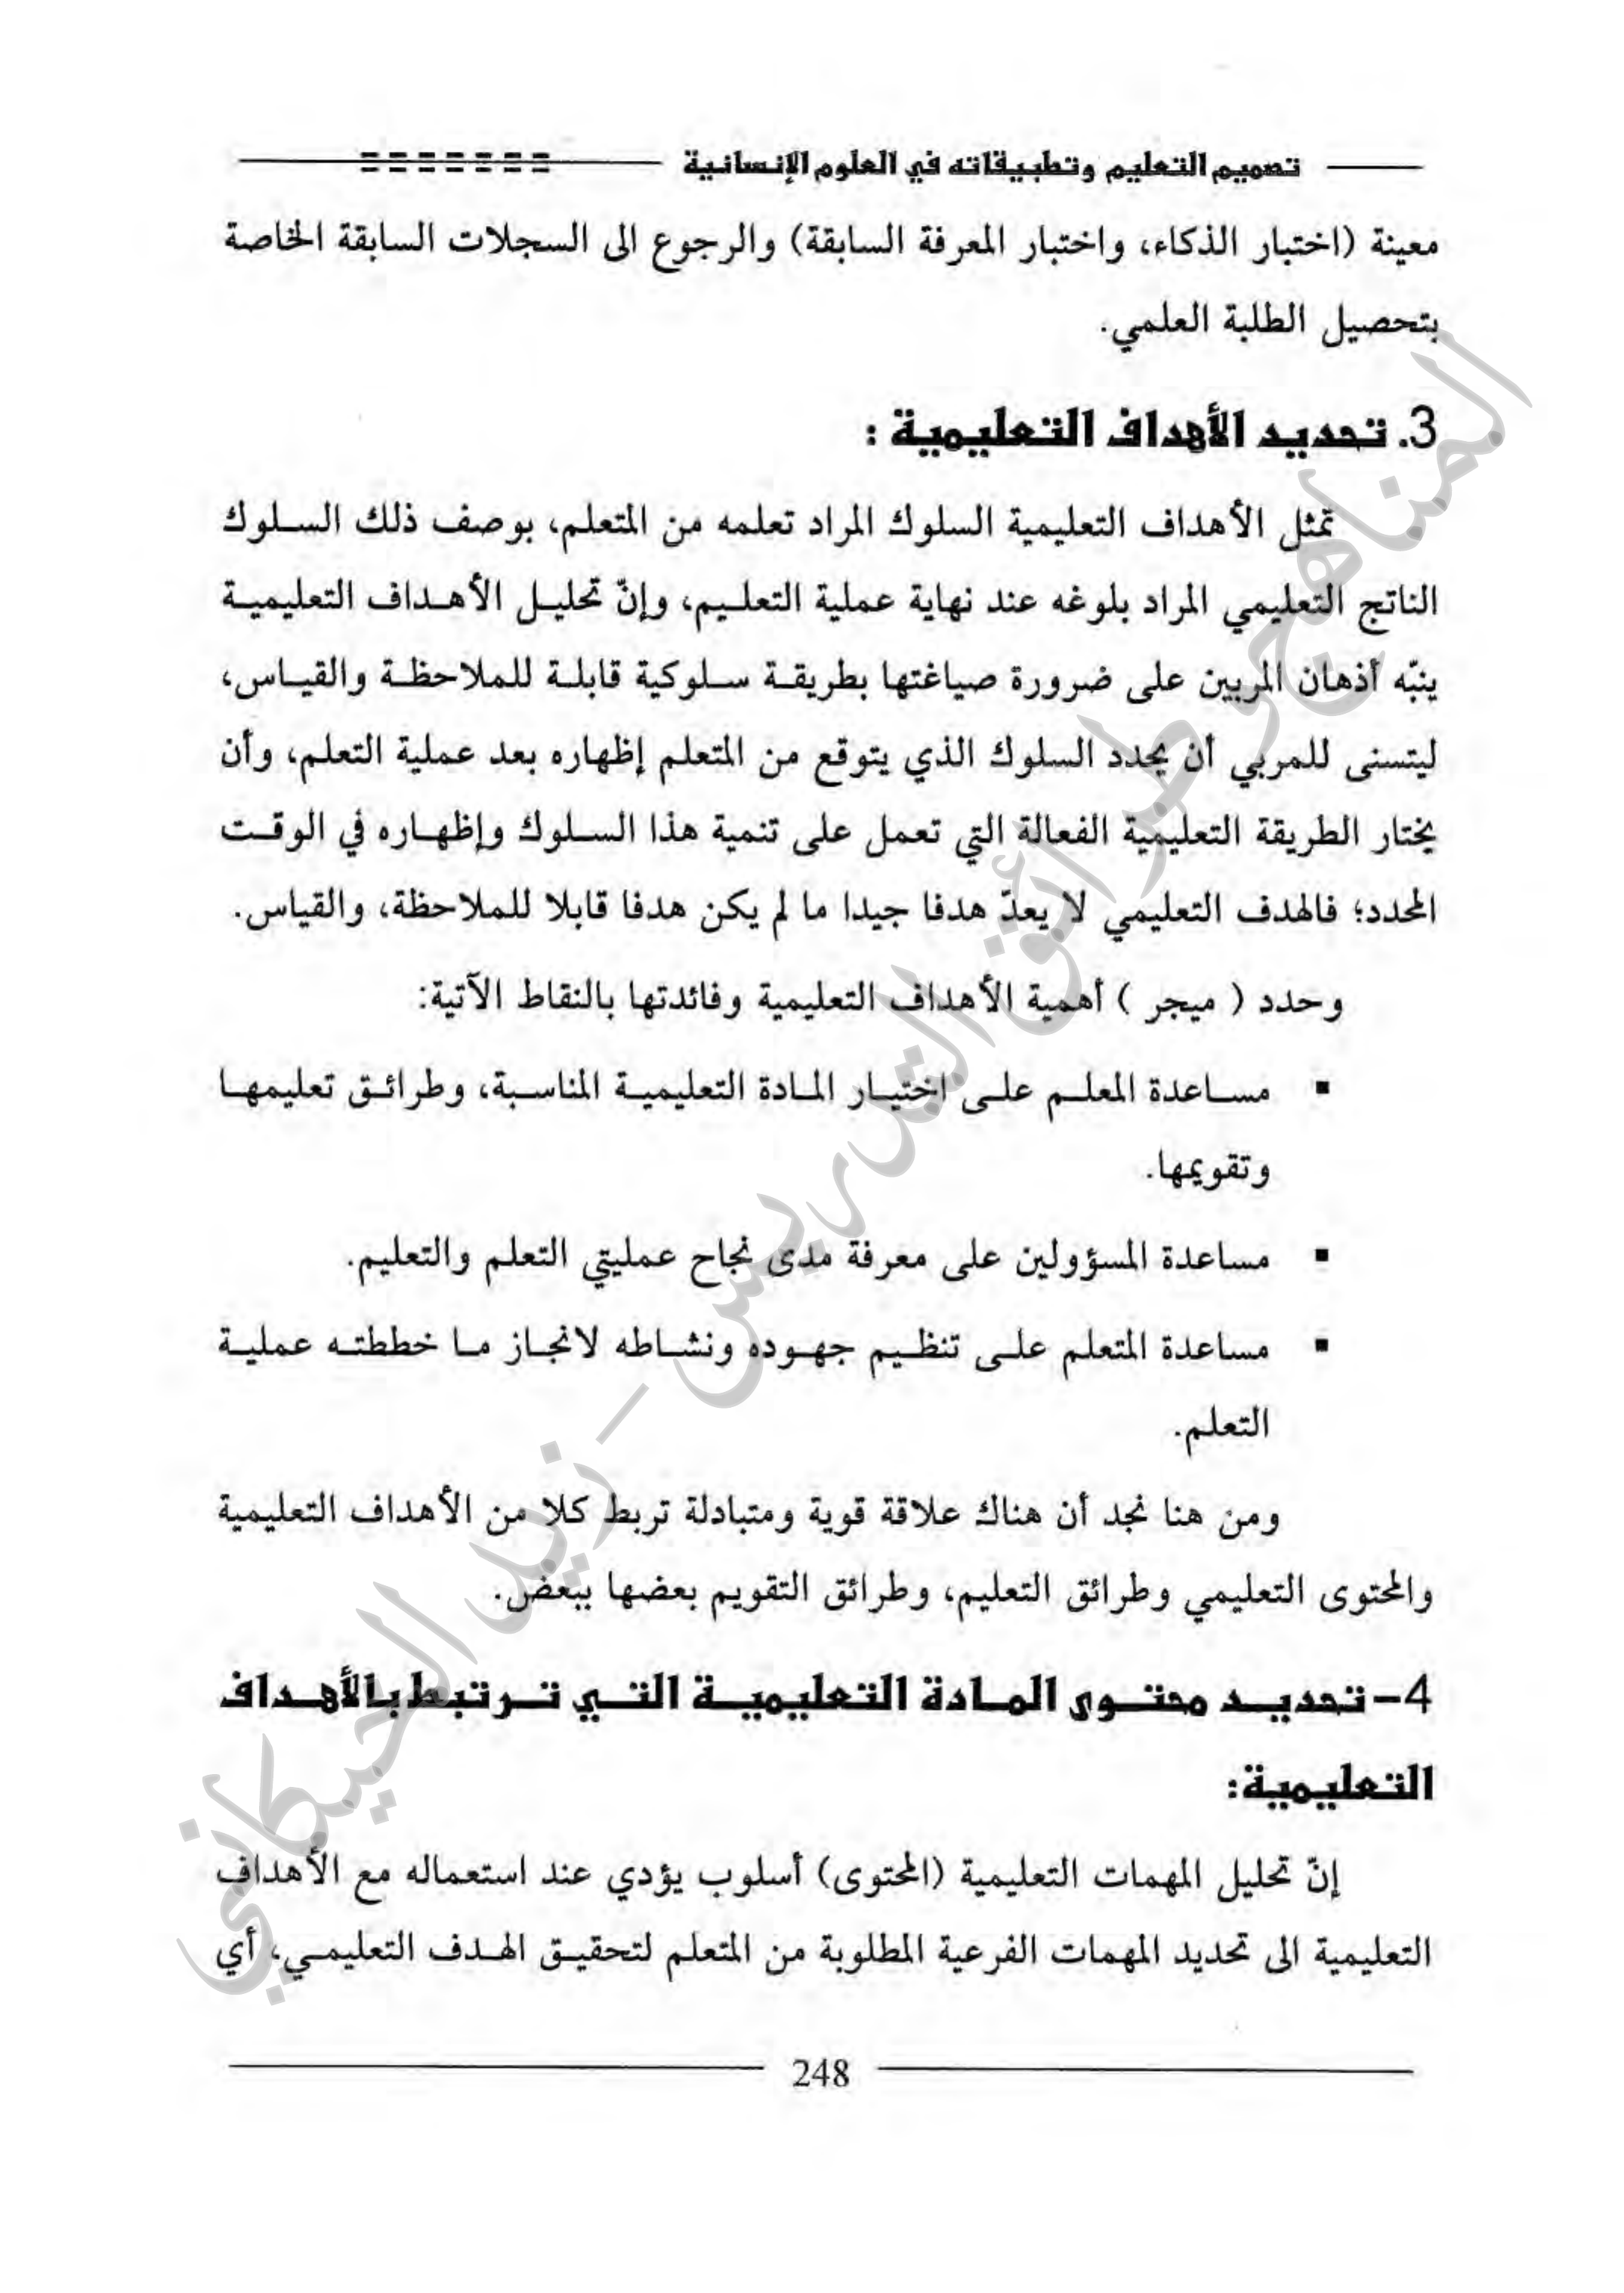 تصميم التعليم وتطبيقاته في العلوم الإنسانية
معينة (اختبار الذكاء، واختبار المعرفة السابقة) والرجوع الى السجلات السابقة الخاصة
بتحصيل الطلبة العلمي.
3. تحديد الأهداف التعليمية :
تمثل الأهداف التعليمية السلوك المراد تعلمه من المتعلم، بوصف ذلك السلوك
الناتج التعليمي المراد بلوغه عند نهاية عملية التعليم، وإنّ تحليل الأهداف التعليمية
ينبّه أذهان المربين على ضرورة صياغتها بطريقة سلوكية قابلة للملاحظة والقياس،
ليتسنى للمربي أن يحدد السلوك الذي يتوقع من المتعلم إظهاره بعد عملية التعلم، وأن
يختار الطريقة التعليمية الفعالة التي تعمل على تنمية هذا السلوك وإظهاره في الوقت
المحدد؛ فالهدف التعليمي لا يعدّ هدفا جيدا ما لم يكن هدفا قابلا للملاحظة، والقياس.
وحدد ( ميجر ) أهمية الأهداف التعليمية وفائدتها بالنقاط الآتية:
▪ مساعدة المعلم على اختيار المادة التعليمية المناسبة، وطرائق تعليمها
وتقويمها.
▪ مساعدة المسؤولين على معرفة مدى نجاح عمليتي التعلم والتعليم.
▪ مساعدة المتعلم على تنظيم جهوده ونشاطه لانجاز ما خططته عملية
التعلم.
ومن هنا نجد أن هناك علاقة قوية ومتبادلة تربط كلا من الأهداف التعليمية
والمحتوى التعليمي وطرائق التعليم، وطرائق التقويم بعضها ببعض.
4- تحديد محتوى المادة التعليمية التي ترتبط بالأهداف
التعليمية:
إنّ تحليل المهمات التعليمية (المحتوى) أسلوب يؤدي عند استعماله مع الأهداف
التعليمية الى تحديد المهمات الفرعية المطلوبة من المتعلم لتحقيق الهدف التعليمي، أي
248
المناهج وطرائق التدريس - زيد الحيكاني